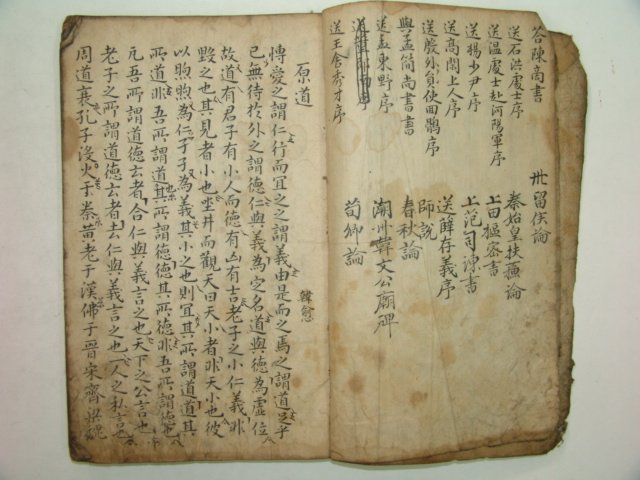 答陳商書
送石洪處士序
送温處士赴河陽軍序
送楊少尹序
送高閑上人序
送殷外負使回鶻序
與孟簡尚書書
送孟東野序
送王含秀才序
留侯論
秦始皇扶蘇論
上田樞密書
上范司諫書
送薛存義序
師說
春秋論
潮州韓文公廟碑
荀卿論
原道 韓愈
博愛之謂仁行而宜之之謂義由是而之焉之謂道足乎
已無待於外之謂德仁與義為定名道與德為虛位
故道有君子有小人而德有凶有吉老子之小仁義非
毀之也其見者小也坐井而觀天曰天小者非天小也彼
以煦煦為仁孑孑為義其小之也則宜其所謂道道其
所道非吾所謂道其所謂德德其所德非吾所謂德也
凡吾所謂道德云者合仁與義言之也天下之公言也
老子之所謂道德云者去仁與義言之也一人之私言也
周道衰孔子沒火于秦黃老于漢佛于晉宋齊梁魏